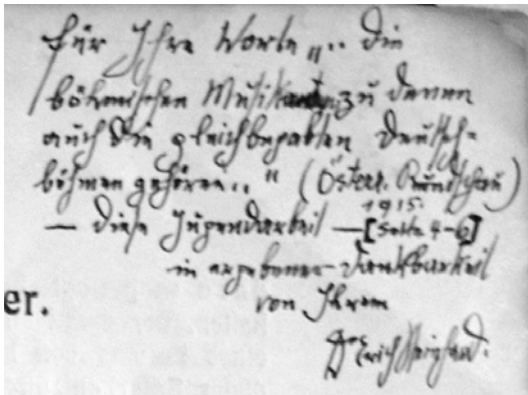 für Ihre Worte „.. die
böhmischen Musikanten, zu denen
auch die gleichbegabten Deutsch-
böhmen gehören.." (Österr. Rundschau)
1915.
— diese Jugendarbeit — [Seite 4-6]
in ergebener Dankbarkeit
er.
von Ihrem
Dr Erich